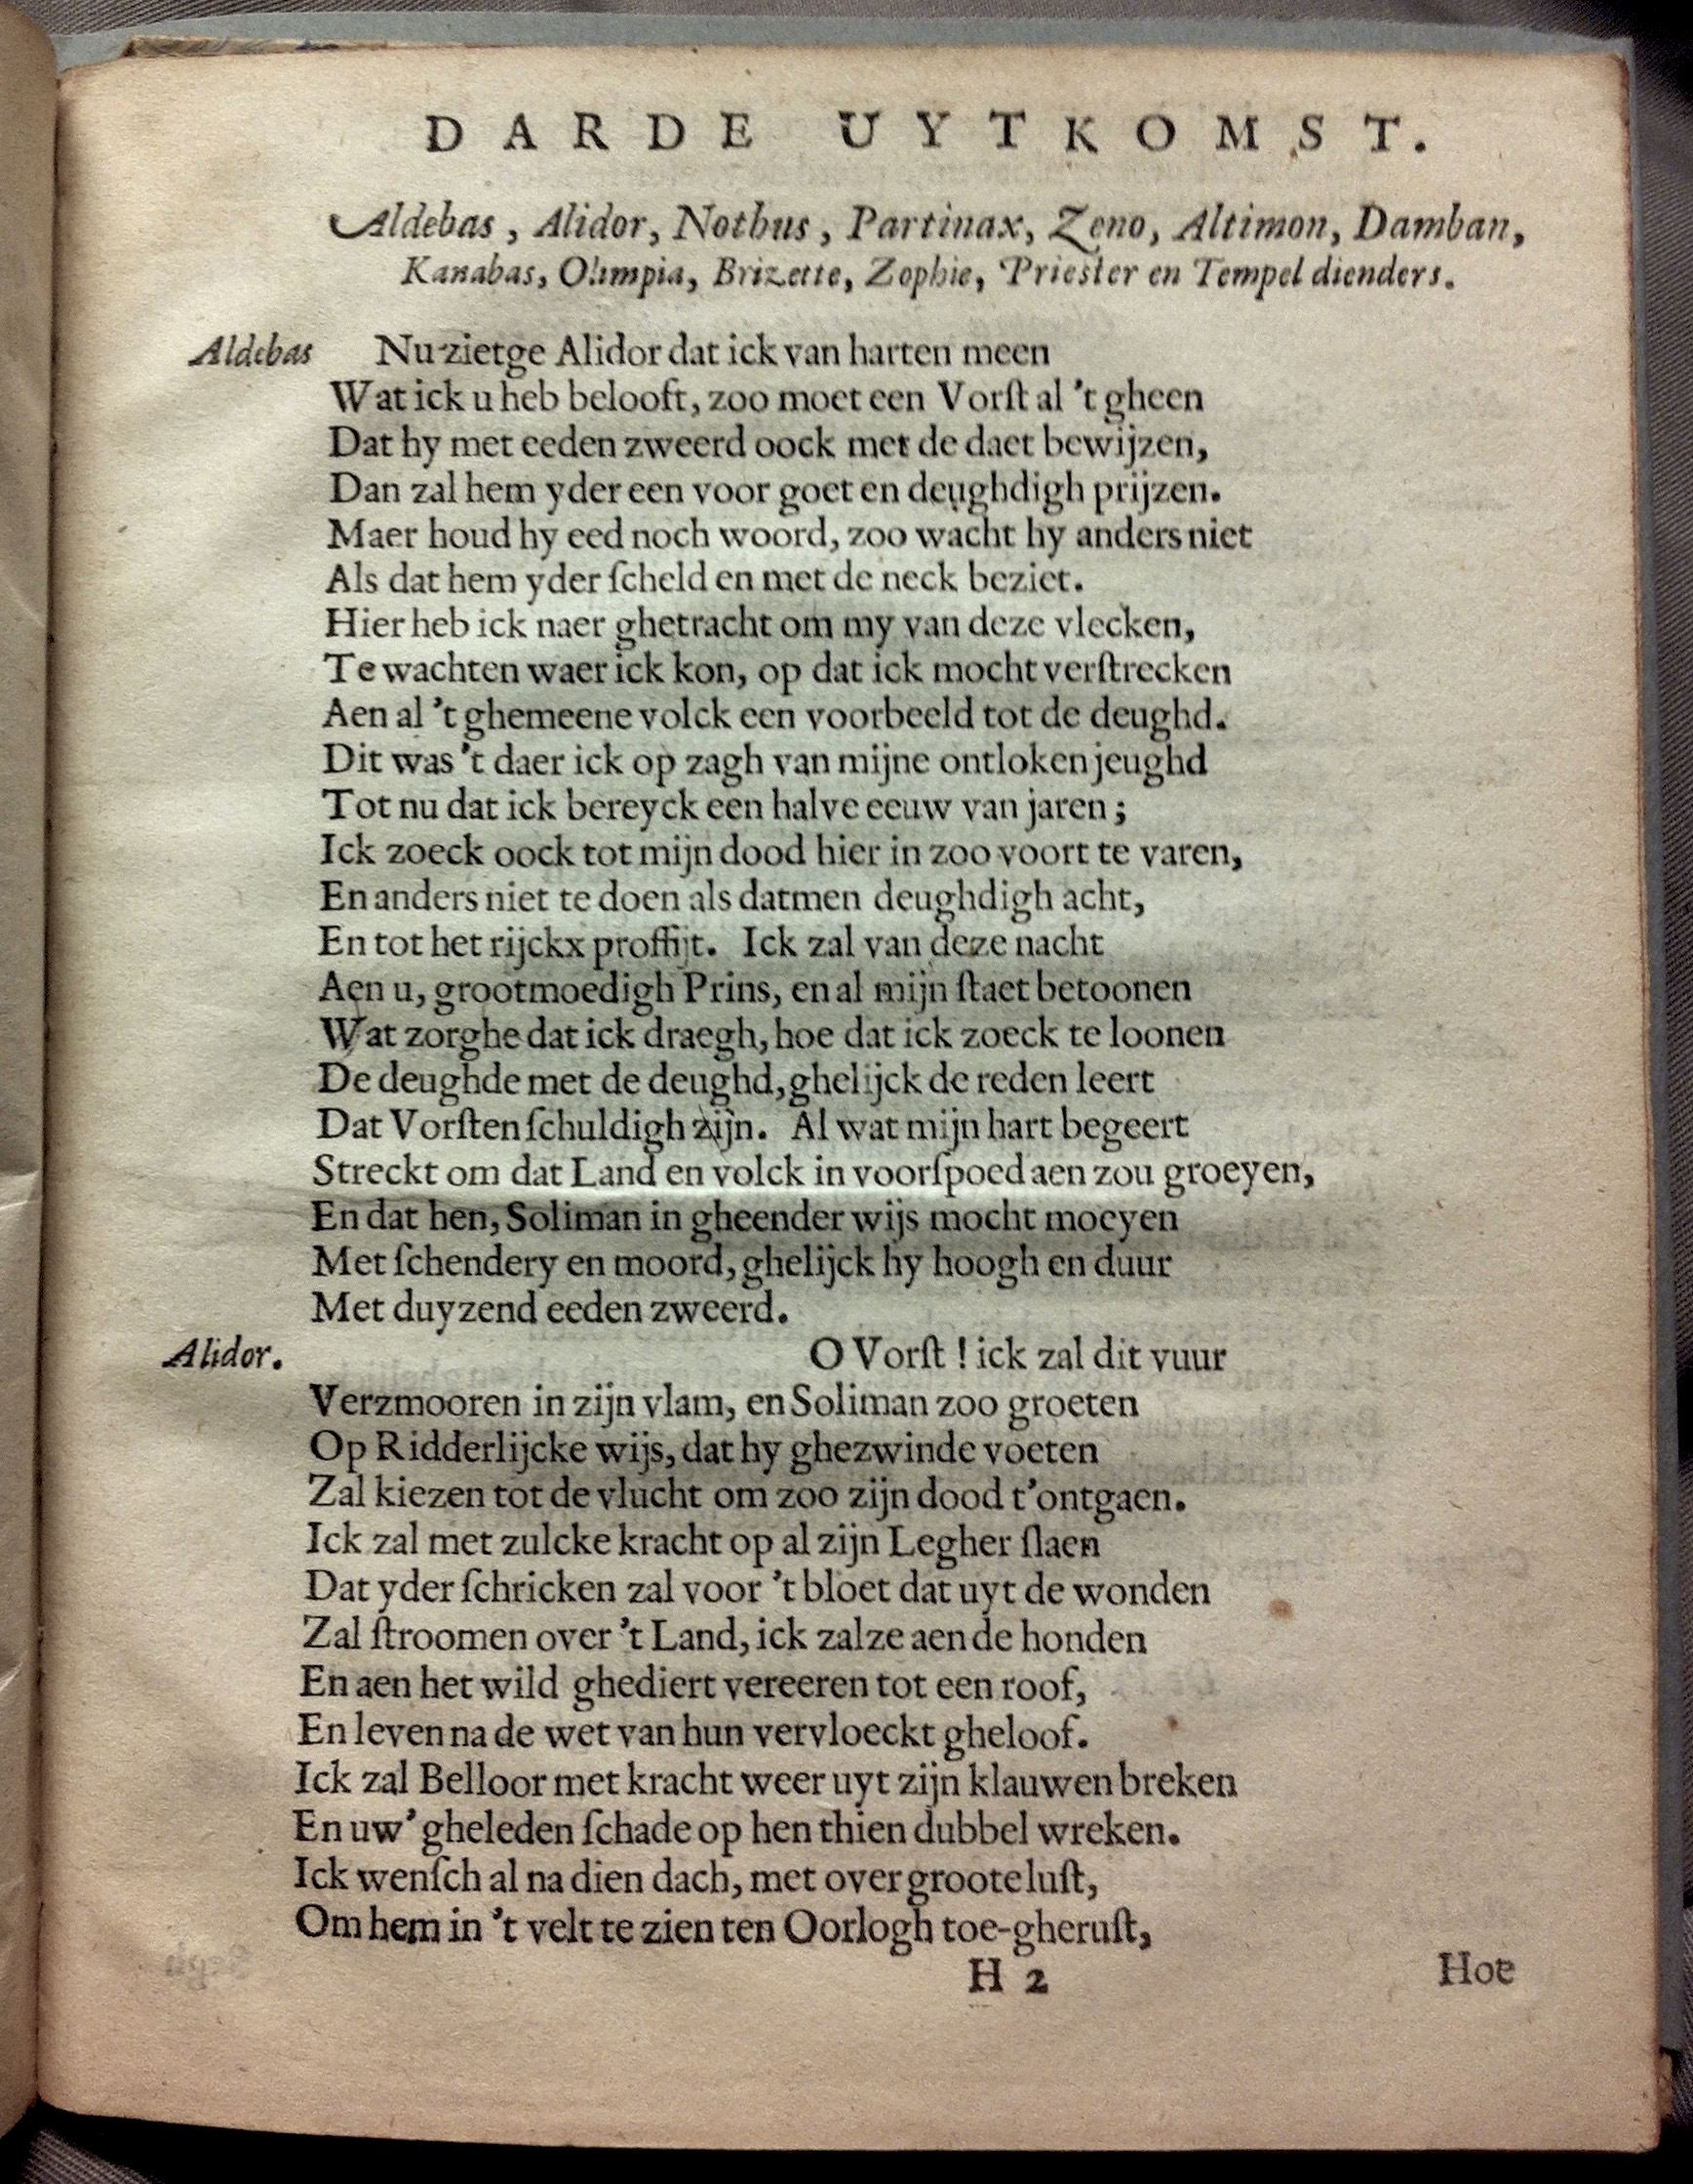 DARDE UYTKOMST.
Aldebas, Alidor, Nothus, Partinax, Zeno, Altimon, Damban,
Kanabas, Olimpia, Brizette, Zophie, Priester en Tempel dienders.
Aldebas Nu zietge Alidor dat ick van harten meen
Wat ick u heb belooft, zoo moet een Vorſt al 't gheen
Dat hy met eeden zweerd oock met de daet bewijzen,
Dan zal hem yder een voor goet en deughdigh prijzen.
Maer houd hy eed noch woord, zoo wacht hy anders niet
Als dat hem yder ſcheld en met de neck beziet.
Hier heb ick naer ghetracht om my van deze vlecken,
Te wachten waer ick kon, op dat ick mocht verſtrecken
Aen al 't ghemeene volck een voorbeeld tot de deughd.
Dit was 't daer ick op zagh van mijne ontloken jeughd
Tot nu dat ick bereyck een halve eeuw van jaren;
Ick zoeck oock tot mijn dood hier in zoo voort te varen,
En anders niet te doen als datmen deughdigh acht,
En tot het rijckx proffijt. Ick zal van deze nacht
Aen u, grootmoedigh Prins, en al mijn ſtaet betoonen
Wat zorghe dat ick draegh, hoe dat ick zoeck te loonen
De deughde met de deughd, ghelijck de reden leert
Dat Vorſten ſchuldigh zijn. Al wat mijn hart begeert
Streckt om dat Land en volck in voorſpoed aen zou groeyen,
En dat hen, Soliman in gheender wijs mocht moeyen
Met ſchendery en moord, ghelijck hy hoogh en duur
Met duyzend eeden zweerd.
Alidor. O Vorſt! ick zal dit vuur
Verzmooren in zijn vlam, en Soliman zoo groeten
Op Ridderlijcke wijs, dat hy ghezwinde voeten
Zal kiezen tot de vlucht om zoo zijn dood t'ontgaen.
Ick zal met zulcke kracht op al zijn Legher ſlaen
Dat yder ſchricken zal voor 't bloet dat uyt de wonden
Zal ſtroomen over 't Land, ick zalze aen de honden
En aen het wild ghediert vereeren tot een roof,
En leven na de wet van hun vervloeckt gheloof.
Ick zal Belloor met kracht weer uyt zijn klauwen breken
En uw' gheleden ſchade op hen thien dubbel wreken.
Ick wenſch al na dien dach, met over groote luſt,
Om hem in 't velt te zien ten Oorlogh toe-gheruſt,
H 2 Hoe